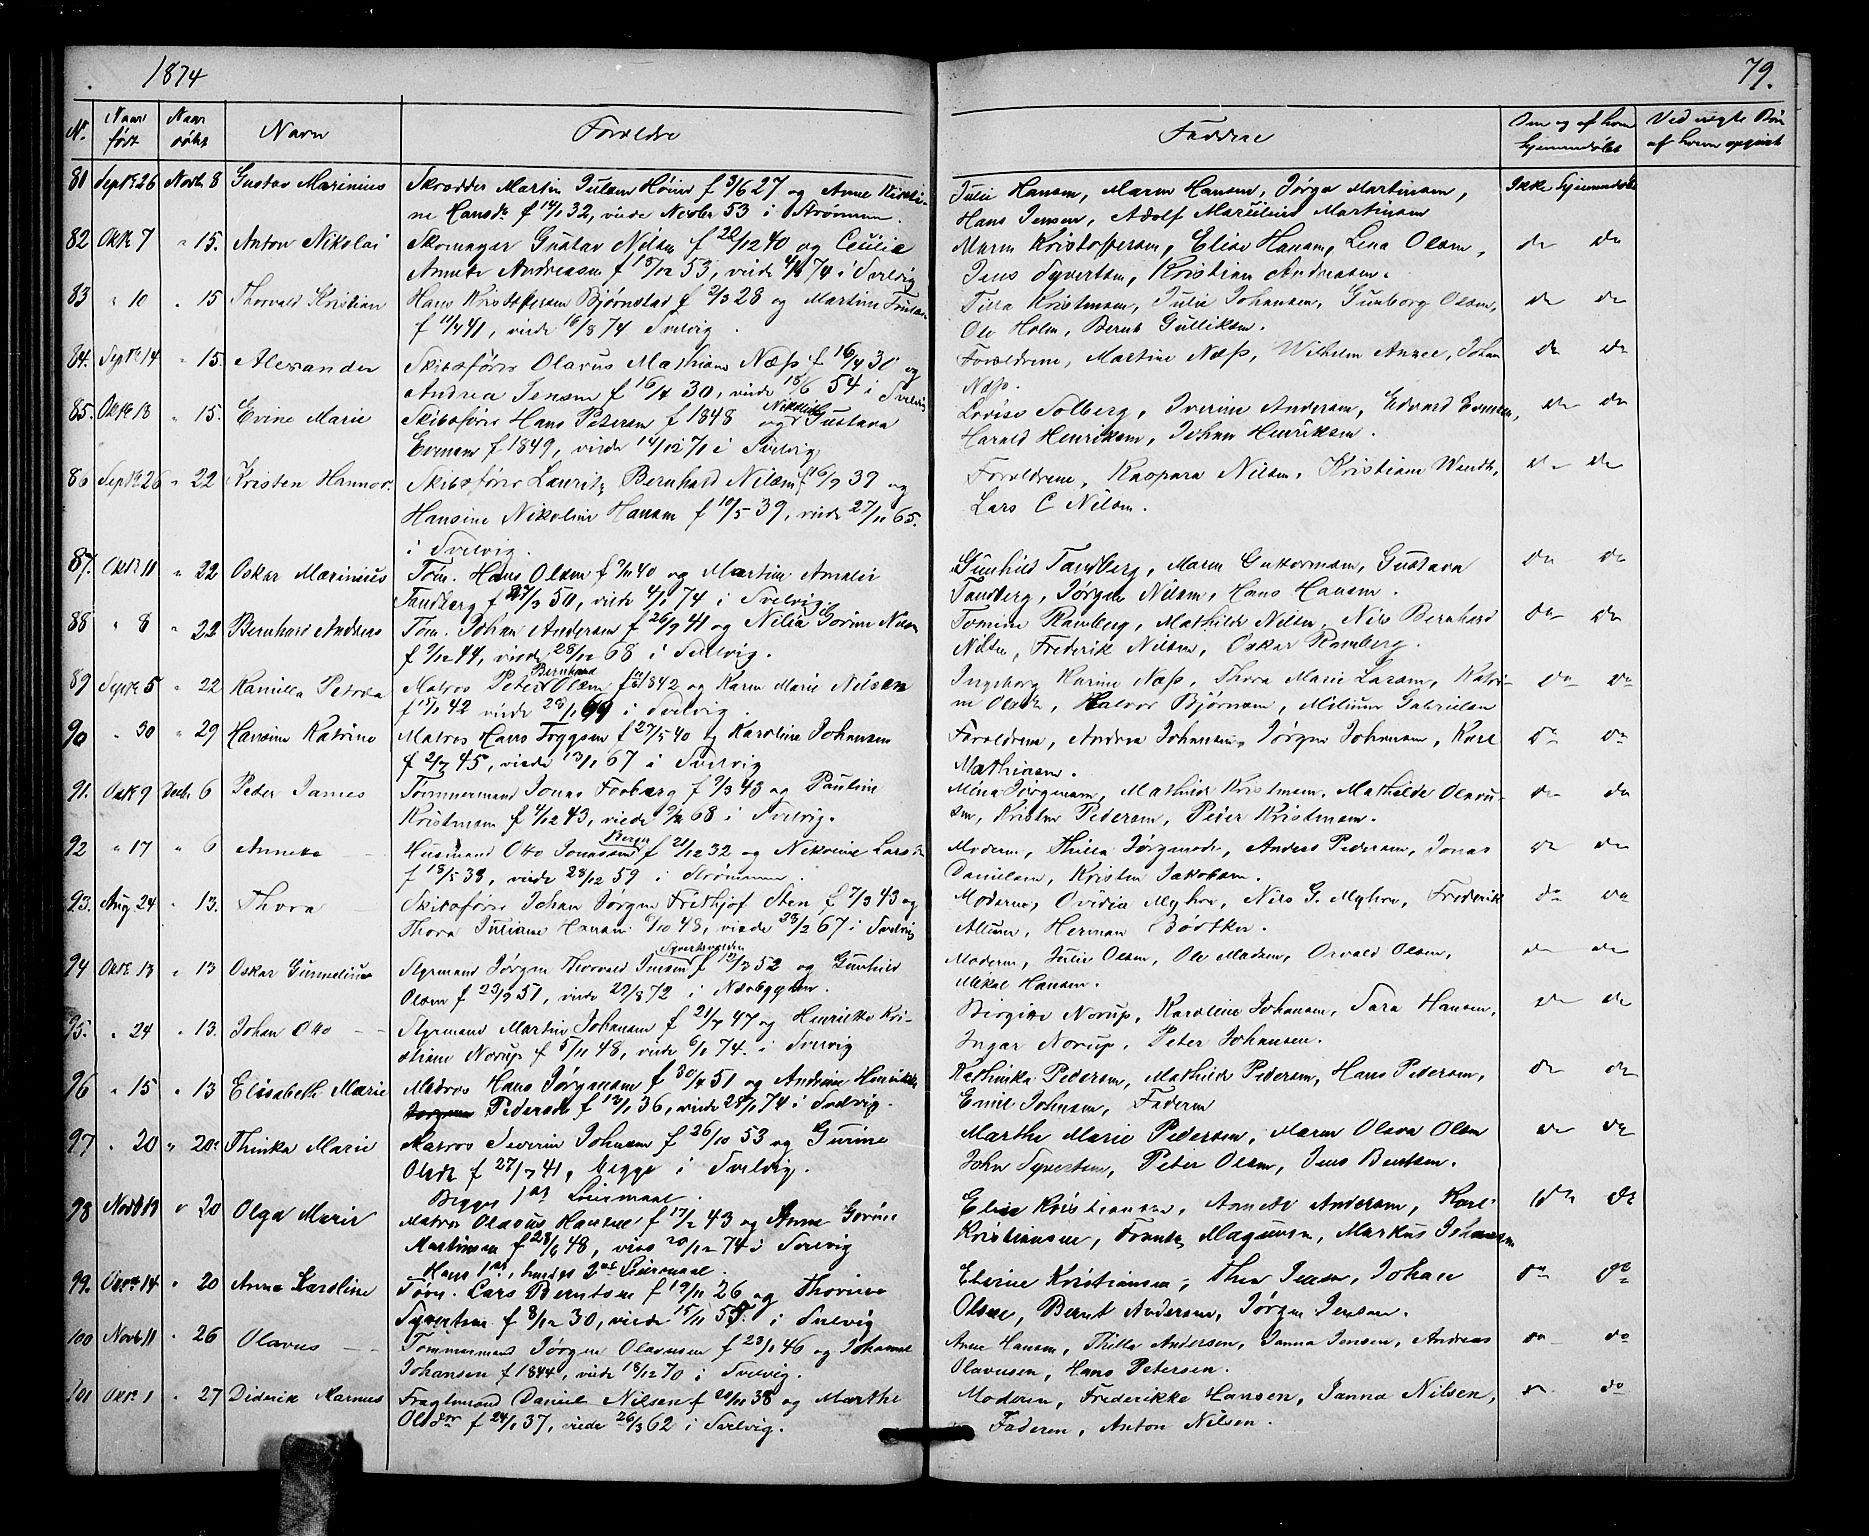 1874
79.
N. Naar født Naar døbt Navn Forældre Faddere Om og af hvem hjemmedøbt Ved uægte Børn af hvem opgivet
81 Septr 26 Novbr 8 Gustav Marinius Skrædder Martin Julsen Høien f 3/6 27 og Anne Kirsti-
ne Hansdr f 14/1 32, viede Novbr 53 i Strømmen.
Julie Hansen, Maren Hansen, Jørga Martinsen, Ikke hjemmedøbt
Hans Jensen, Adolf Marelius Martinsen
82 Oktr 7 " 15. Anton Nikolai Skomager Gustav Nilsen f 20/12 40 og Cecilie
Annette Andreasen f 15/12 53, viede 74 i Svelvig
Maren Kristoffersen, Elise Hansen, Lena Olsen, do do
Jens Syvertsen, Kristian Andreasen.
83 " 10 " 15 Thorvald Kristian Hans Kristoffersen Bjørnstad f 2/3 28 og Martine
f 11/4 41, viede 16/8 74 Svelvig.
Tilla Kristensen, Julie Johansen, Gunborg Olsen, do do
Ole Holm, Bernt Gulliksen.
84. Septr 14 " 15. Alexander Skibsfører Olavus Mathiasen Næss f 16/4 30 og
Andrea Jensen f 16/4 30, viede 15/6 54 i Svelvig
Forældrene, Martine Næss, Wilhelm Anzee, Johan do do
Næss.
85. Oktr 13 " 15. Evine Marie Skibsfører Hans Petersen f 1848 og Nikoline Gustava
Evensen f 1849, viede 14/12 71 i Svelvig
Lovise Solberg, Iverine Andersen, Edvard Evensen, do do
Harald Henriksen, Johan Henriksen.
86 Septr 26 " 22 Kristen Hannor. Skibsfører Lauritz Bernhard Nilsen f 16/9 39 og
Hansine Nikoline Hansen f 10/5 39, viede 27/11 65.
i Svelvig.
Forældrene, Kaspara Nilsen, Kristiane Wendt, do do
Lars C Nilsen.
87. Oktr 11 " 22 Oskar Marinius Tøm. Hans Olsen f 9/11 40 og Martine Amalie
Tandberg f 27/3 50, viede 4/1 74 i Svelvig
Gunhild Tandberg, Maren Guttormsen, Gustava do do
Tandberg, Jørgen Nilsen, Hans Hansen.
88 " 8 " 22 Bernhard Andreas Tøm. Johan Andersen f 26/9 41 og Nilia Gorine Nilsen
f 9/12 44, viede 28/12 68 i Svelvig.
Tomine Ramberg, Mathilde Nilsen, Nils Bernhard do do
Nilsen, Frederik Nilsen, Oskar Ramberg.
89 Septr 5 " 22 Kamilla Petrea Matros Peter Bernhard Olsen f 1842 og Karen Marie Nilsen
f 15/1 42 viede 28/1 69 i Svelvig.
Ingeborg Karine Næss, Thora Marie Larsen, Katri- do do
ne Olsdr, Halvor Bjørnsen, Milium Gabrielsen
90 " 30 " 29 Hansine Katrine Matros Hans Foggsen f 27/5 40 og Karoline Johansen
f 2/7 45, viede 13/1 67 i Svelvig
Forældrene, Andrea Johansen, Jørgen Johansen, Karl do do
Mathiasen.
91. Oktr 9 Decbr 6 Peder James Tømmermand Jonas Fosberg f 9/3 43 og Pauline
Kristensen f 4/12 43, viede 68 i Svelvig.
Mina Jørgensen, Mathilde Kristensen, Mathilde Olavu- do do
sen, Kristen Pedersen, Peder Kristensen.
92 " 17 " 6 Annette Husmand Otto Jonassen Berger f 21/12 32 og Nikoline Larsdr
f 18/5 38, viede 28/12 59 i Strømmen.
Moderen, Thilla Jørgensdr, Anders Pedersen, Jonas do do
Danielsen, Kristen Jakobsen.
93. Aug. 24 " 13. Thora Skibsfører Johan Jørgen Fridthjof Sten f 7/3 43 og
Thora Juliane Hansen 6/10 48, viede 28/2 67 i Svelvig
Moderen, Ovidia Myhre, Nils G. Myhre, Frederik do do
Allum, Herman Bødtker.
94 Oktr 13 " 13 Oskar Gunnelius Styrmand Jørgen Thorvald Jensen f 19/3 52 og Gunhild
Olsen f 23/9 51, viede 29/8 72 i Næsbygden.
Moderen, Julie Olsen, Ole Madsen, Osvald Olsen, do do
Mikal Hansen.
95. " 24 " 13. Johan Otto Styrmand Martin Johansen f 21/7 47 og Henriette Kri-
stiane Norup f 5/11 48, viede 6/1 74. i Svelvig
Birgitte Norup, Karoline Johansen, Sara Hansen, do do
Ingar Norup, Peter Johansen.
96 " 15 " 13 Elisabeth Marie Matros Hans Jørgensen f 30/4 51 og Andrine Henrikke
Pedersdr f 12/1 36, viede 28/1 74 i Svelvig.
Kathinka Pedersen, Mathilde Pedersen, Hans Pedersen, do do
Emil Johnsen, Faderen
97 " 20 " 20: Thinka Marie Matros Severin Johnsen f 26/10 53 og Gurine
Olsdr f 27/7 41, begge i Svelvig.
Begges 1ste Leiermaal.
Marthe Marie Pedersen, Maren Olava Olsen do do
John Syvertsen, Peter Olsen, Jens Bentsen.
98 Novbr 13 " 20 Olga Marie Matros Olavus Hansen f 17/2 43 og Anne Gorine
Martinsen f 28/6 48, viede 20/12 74 i Svelvig
Hans 1ste, hendes 2det Leiermaal.
Elise Kristiansen, Annette Andersen, Karl do do
Kristiansen, Frantz Magnusen, Markus Johansen
99. Oktr 14 " 20 Anna Karoline Tøm. Lars Berntsen f 19/11 26 og Thorine
Syvertsen f 8/12 30, viede 15/11 55. i Svelvig
Elevine Kristiansen, Thea Jensen, Johan do do
Olsen, Bernt Andersen, Jørgen Jensen.
100 Novbr 11 " 26 Olavus Tømmermand Jørgen Olavusen f 23/1 46 og Johanne
Johansen f 1844, viede 18/12 70 i Svelvig.
Anne Hansen, Thilla Andersen, Janna Jensen, Andreas do do
Olavusen, Hans Petersen.
101 Oktr 1 " 27 Diderik Marnus Fragtmand Daniel Nilsen f 20/11 38 og Marthe
Olsdtr f 24/1 37, viede 26/3 62 i Svelvig.
Moderen, Frederikke Hansen, Janna Nilsen, do do
Faderen, Anton Nilsen.